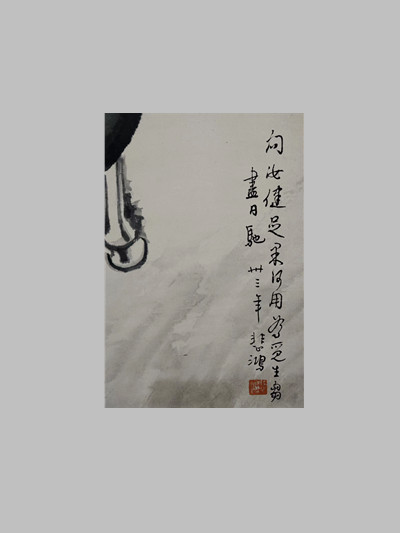 問汝健足果何用為覓生芻
盡日馳 卅三年 悲鴻